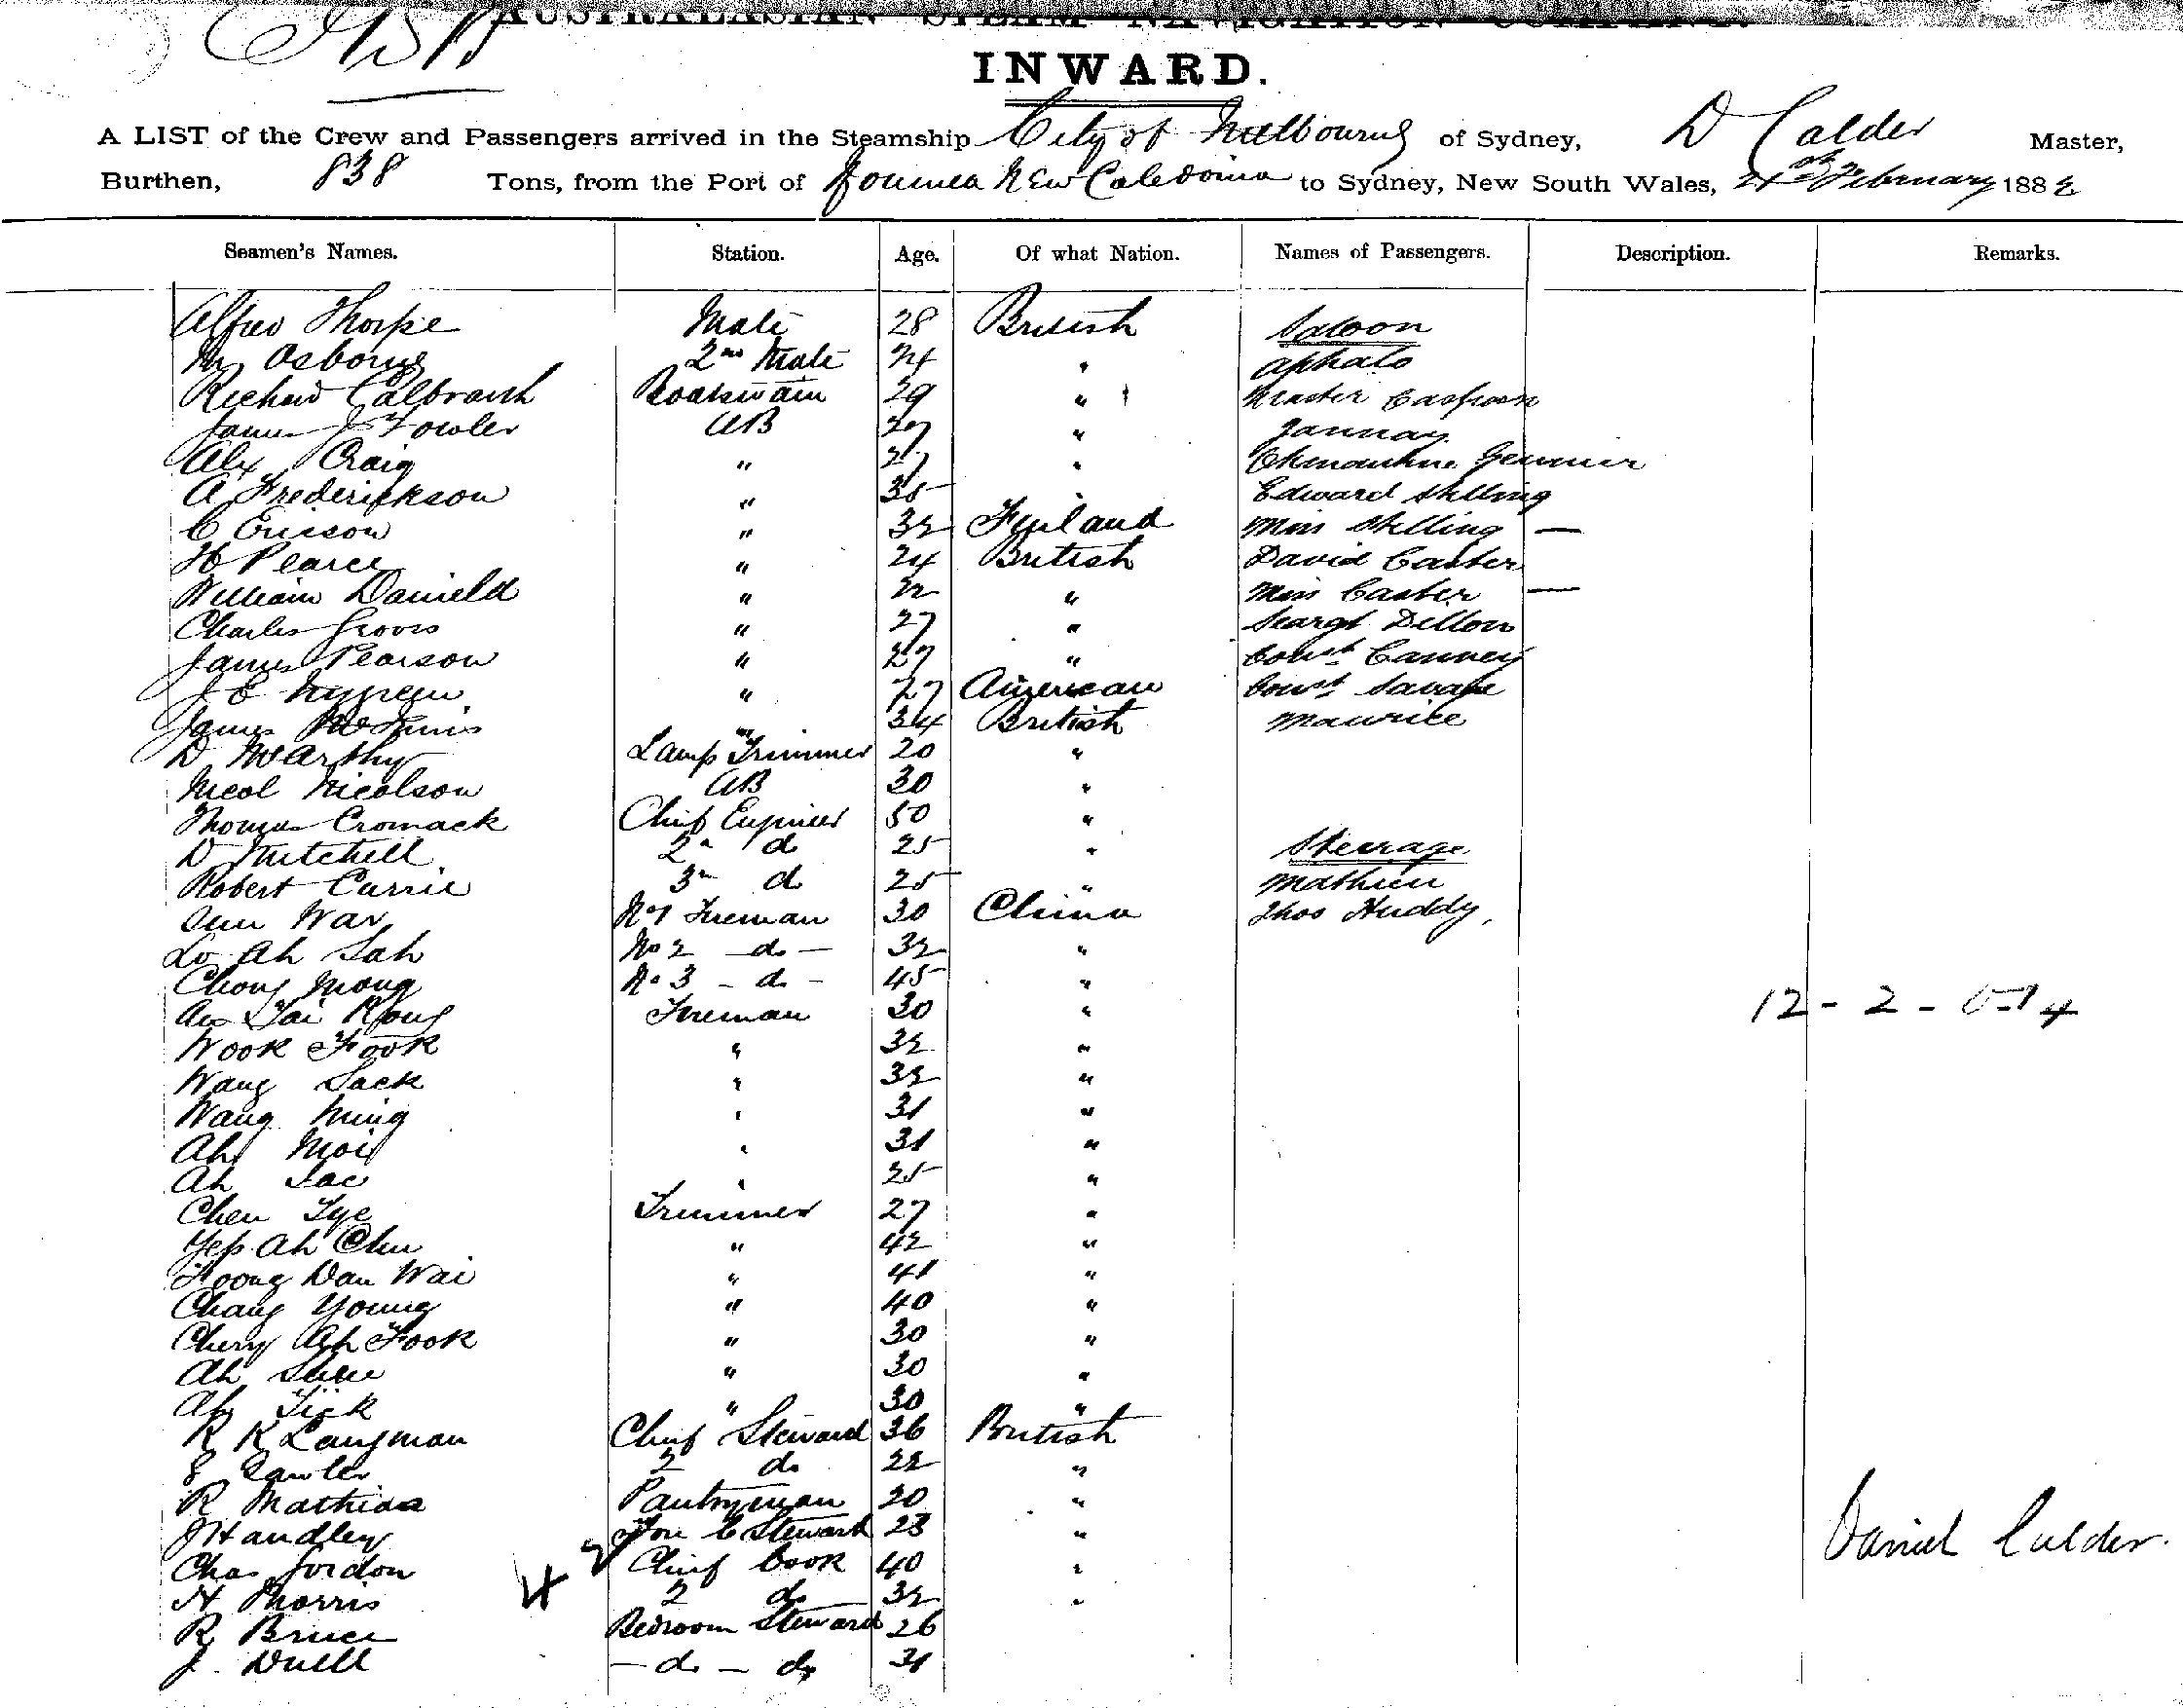 AUSTRALASIAN STEAM NAVIGATION COMPANY.
INWARD.
A LIST of the Crew and Passengers arrived in the Steamship City of Melbourne of Sydney, D Calder Master,
Burthen, 838 Tons, from the Port of Noumea New Caledonia to Sydney, New South Wales, February 1882
Seamen's Names. Station. Age. Of what Nation. Names of Passengers. Description. Remarks.
Alfred Thorpe Mate 28 British Saloon
Wm Osborne 2nd Mate 24 "
Richard Galbraith Boatswain 29 " Master
James J Fowler AB " Jannay
Alex Craig " "
A Frederickson " 35 " Edward Skelling
C Ericson " 32 Finland Miss Skelling —
H Pearce " 24 British David Caster
William Danield " 22 " Miss Caster —
Charles Groves " 27 " Seargt Dillon
James Pearson " 27 " Const Canney
J E Nygren " 27 American Const Savage
James McGinnis " 34 British Maurice
D McCarthy Lamp Trimmer 20 "
Nicol Nicolson AB 30 "
Thomas Cromack Chief Engineer 50 "
D Mitchell 2nd do 25 " Steerage
Robert Currie 3rd do 25 " Mathieu
War No 1 Fireman 30 China Thos Huddy,
Lo Ah Sah No 2 - do - 32 "
Chong Mong No 3 - do - 45 "
Tai Kong Fireman 30 " 12 - 2 - 0-14
Wook Fook " 32 "
Wang Sack " 32 "
Wang Ming " 31 "
Ah Moi " 31 "
Ah Sac " 25 "
Chen Tye Trimmer 27 "
Yep Ah Chu " 42 "
Foong Dan Wai " 41 "
Chang Young " 40 "
Ah Fook " 30 "
Ah " 30 "
Ah Tick " 30 "
R K Langman Chief Steward 36 British
E Lawler 2 do 22 "
R Mathias Pantryman 20 "
J Handley Fore C Steward 23 "
Chas Gordon Chief Cook 40 " Daniel Calder.
H Morris 4 2 do 32 "
R Bruce Bedroom Steward 26
J. Duell - do - do 31